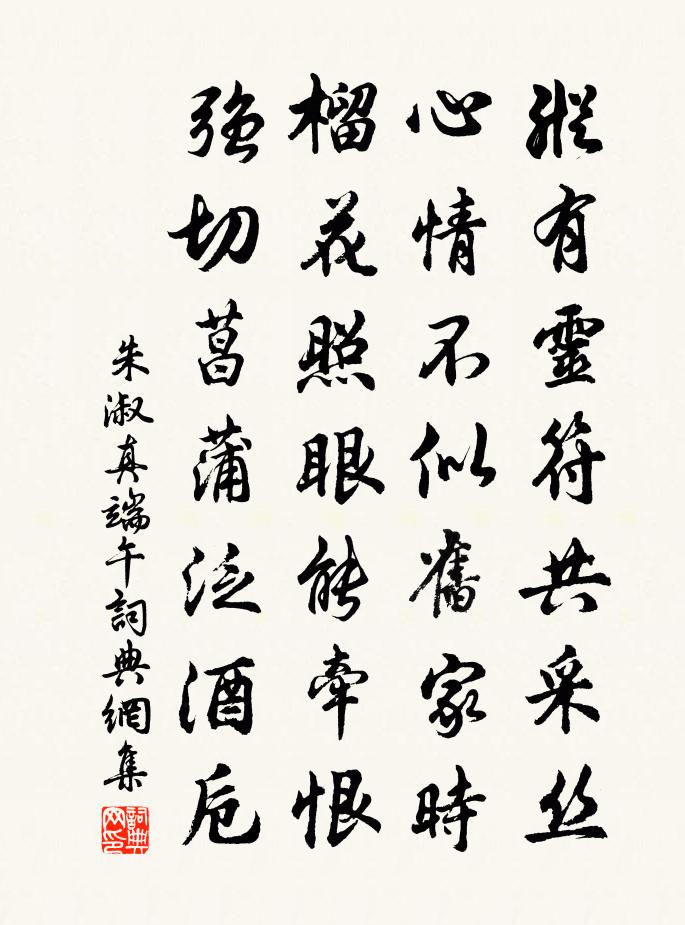 縱有靈符共采丝
心情不似舊家時
榴花照眼能牽恨
強切菖蒲泛酒卮
朱淑真端午詞典網集
詞典网印